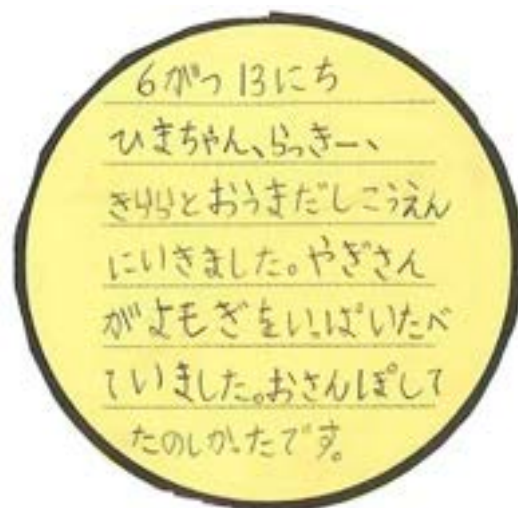 6がつ13にち
ひまちゃん、らっきー、
きららとおうまだしこうえん
にいきました。やぎさん
がよもぎをいっぱいたべ
ていました。おさんぽして
たのしかったです。